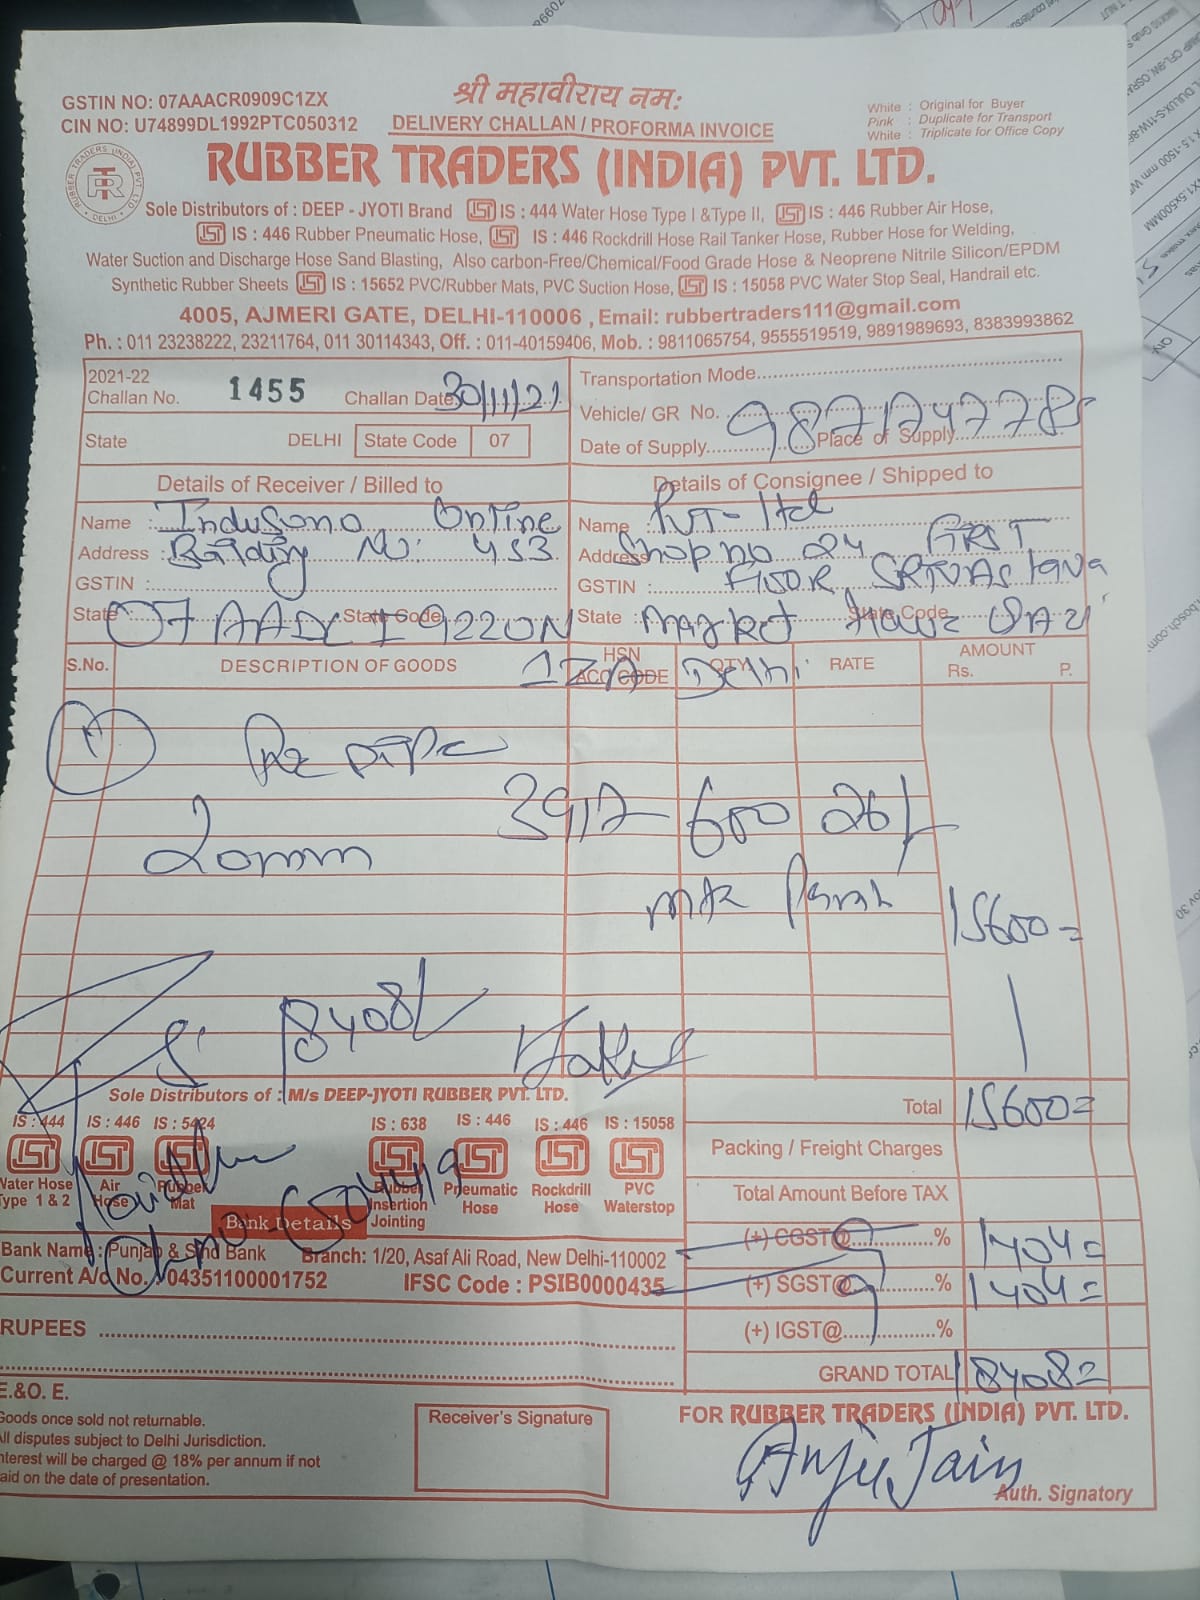 GSTIN NO: 07AAACR0909C1ZX
CIN NO: U74899DL1992PTC050312
श्री महावीराय नमः
DELIVERY CHALLAN / PROFORMA INVOICE
White : Original for Buyer
Pink : Duplicate for Transport
White : Triplicate for Office Copy
RUBBER TRADERS (INDIA) PVT. LTD.
Sole Distributors of : DEEP - JYOTI Brand ISI IS : 444 Water Hose Type I & Type II, ISI IS : 446 Rubber Air Hose,
ISI IS : 446 Rubber Pneumatic Hose, ISI IS : 446 Rockdrill Hose Rail Tanker Hose, Rubber Hose for Welding,
Water Suction and Discharge Hose Sand Blasting, Also carbon-Free/Chemical/Food Grade Hose & Neoprene Nitrile Silicon/EPDM
Synthetic Rubber Sheets ISI IS : 15652 PVC/Rubber Mats, PVC Suction Hose, ISI IS : 15058 PVC Water Stop Seal, Handrail etc.
4005, AJMERI GATE, DELHI-110006 , Email: rubbertraders111@gmail.com
Ph. : 011 23238222, 23211764, 011 30114343, Off. : 011-40159406, Mob. : 9811065754, 9555519519, 9891989693, 8383993862
2021-22
Challan No. 1455 Challan Date 30/11/21
State DELHI State Code 07
Transportation Mode
Vehicle/ GR No. 9871747785
Date of Supply Place of Supply
Details of Receiver / Billed to
Name : Online
Address : Building No: 453
GSTIN :
State 07AADCI9220N State Code
1ZA
Details of Consignee / Shipped to
Name Pvt- ltd
Address Shop no 24 FIRST
GSTIN : FlooR
State : Market State Code
Delhi
S.No. DESCRIPTION OF GOODS HSN ACC CODE QTY RATE AMOUNT
Rs. P.
1
20mm 3917 600 26/-
mtr
15600=
18408/-
Sole Distributors of : M/s DEEP-JYOTI RUBBER PVT. LTD.
IS : 444 IS : 446 IS : 5424 IS : 638 IS : 446 IS : 446 IS : 15058
ISI ISI ISI ISI ISI ISI ISI
Water Hose Type 1 & 2 Air Hose Rubber Mat Rubber Insertion Jointing Pneumatic Hose Rockdrill Hose PVC Waterstop
Bank Details
Bank Name : Punjab & Sind Bank Branch: 1/20, Asaf Ali Road, New Delhi-110002
Current A/c No. 04351100001752 IFSC Code : PSIB0000435
Total 15600=
Packing / Freight Charges
Total Amount Before TAX
(+) CGST@ 9 % 1404=
(+) SGST@ 9 % 1404=
(+) IGST@ %
GRAND TOTAL 18408=
RUPEES
E.&O. E.
Goods once sold not returnable.
All disputes subject to Delhi Jurisdiction.
Interest will be charged @ 18% per annum if not
paid on the date of presentation.
Receiver's Signature
FOR RUBBER TRADERS (INDIA) PVT. LTD.
Anju Jain
Auth. Signatory